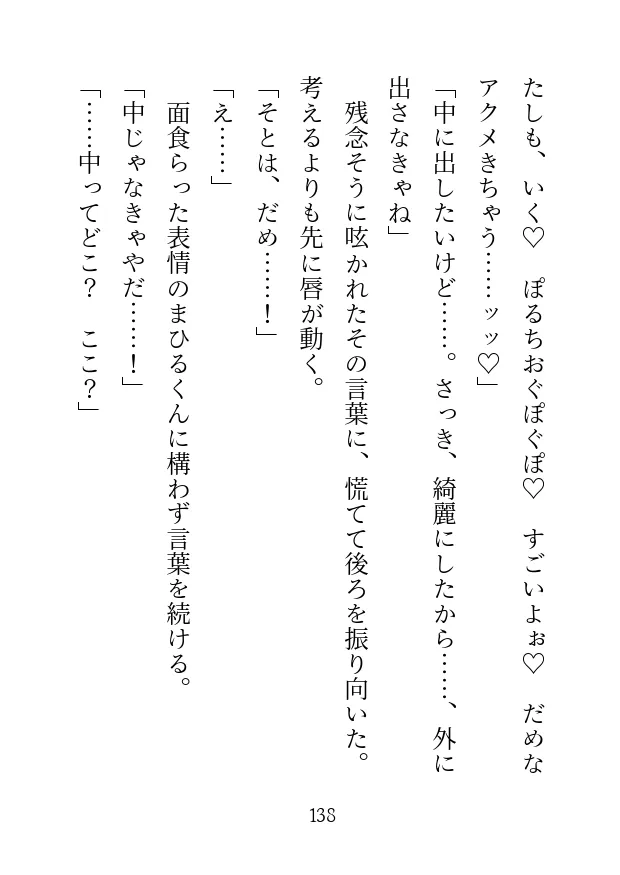 たしも、いく♡　ぽるちおぐぽぐぽ♡　すごいよぉ♡　だめな
アクメきちゃう……ッッ♡」
「中に出したいけど……。さっき、綺麗にしたから……、外に
出さなきゃね」
　残念そうに呟かれたその言葉に、慌てて後ろを振り向いた。
考えるよりも先に唇が動く。
「そとは、だめ……！」
「え……」
　面食らった表情のまひるくんに構わず言葉を続ける。
「中じゃなきゃやだ……！」
「……中ってどこ？　ここ？」
138